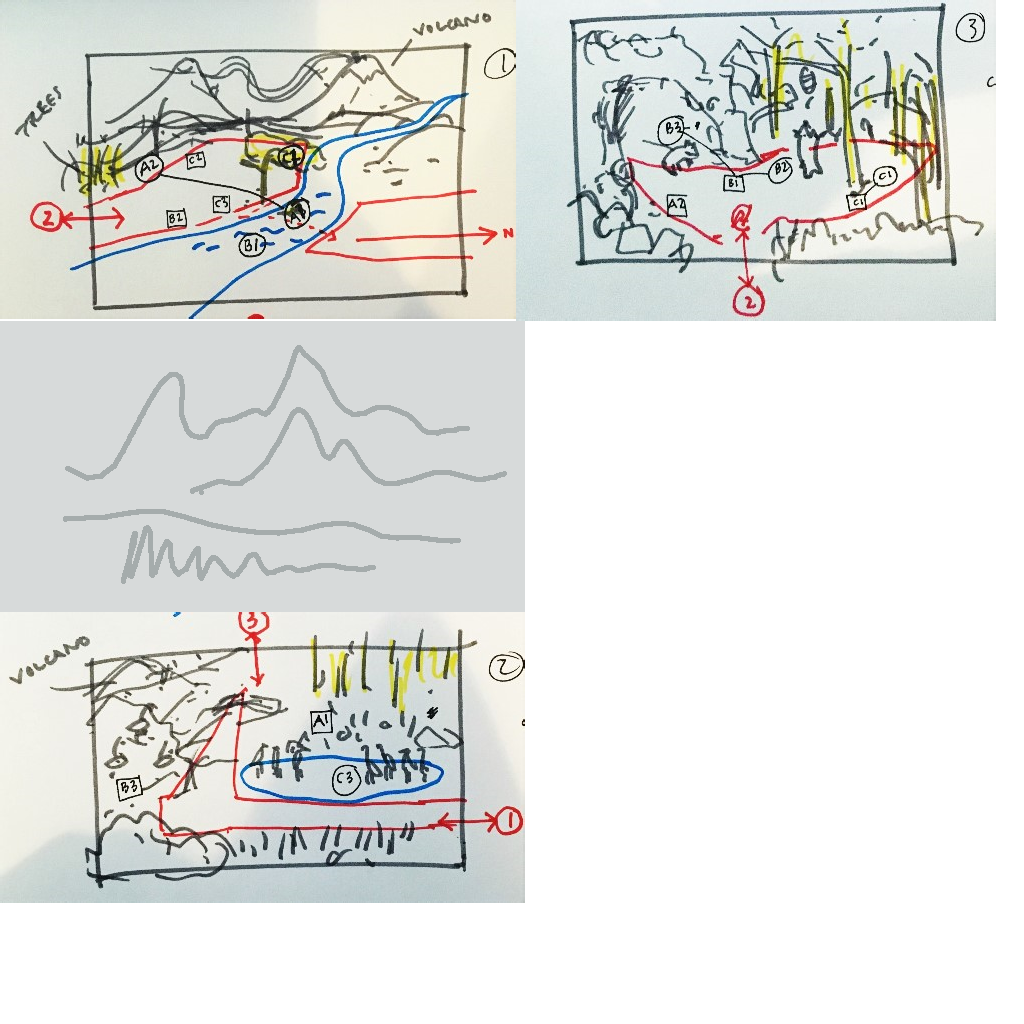 VOLCANO
1
TREES
A2
C2
C1
2
B2
C3
A3
B1
N
3
B3
B1
B2
A2
C1
C1
2
3
VOLCANO
2
A1
B3
C3
1